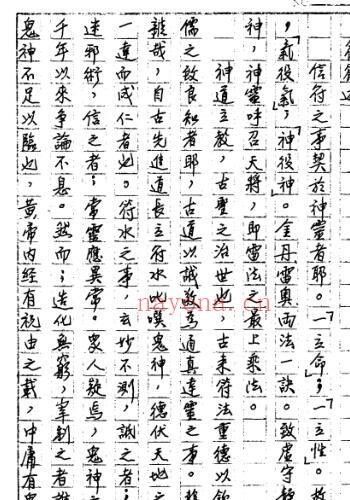 信符之事契於神靈者耶。「立命」「立性」。
，「氣役氣」，神役神。金丹雷奧兩法一訣。致虛守
神，神靈呼召天將，即雷法之最上乘法。
神道立教，古聖之治世也，古來符法重德以
儒之致良知者耶，古道以誠為通真達靈之事。
龍哉，自古先進道長立符水以嘆鬼神，德伏天地之
一達而成仁者也。符水之事，玄妙不測，誠之者
迷邪術，信之者；常靈應異常。眾人疑焉，鬼神之
千年以來爭論不息。然而；造化無窮，宰割之者
鬼神不足以臨也，黃帝內經有祝由之載，中庸有
nayona.cn